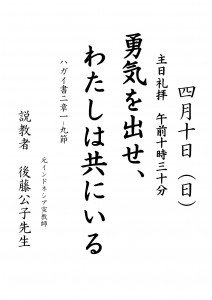 四月十日（日）
主日礼拝　午前十時三十分
勇気を出せ、
わたしは共にいる
ハガイ書二章一−九節
元インドネシア宣教師
説教者　後藤公子先生